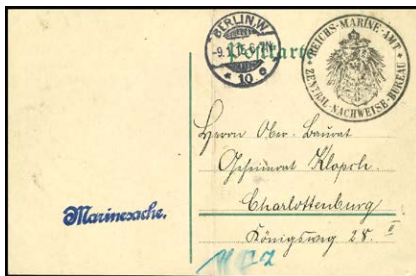 BERLIN.W
* 10 o
Postkarte
REICHS-MARINE-AMT
ZENTRAL-NACHWEISE-BUREAU
Herrn Ober-Baurat
Geheimrat
Marinesache.
Charlottenburg
Königsweg 28. II